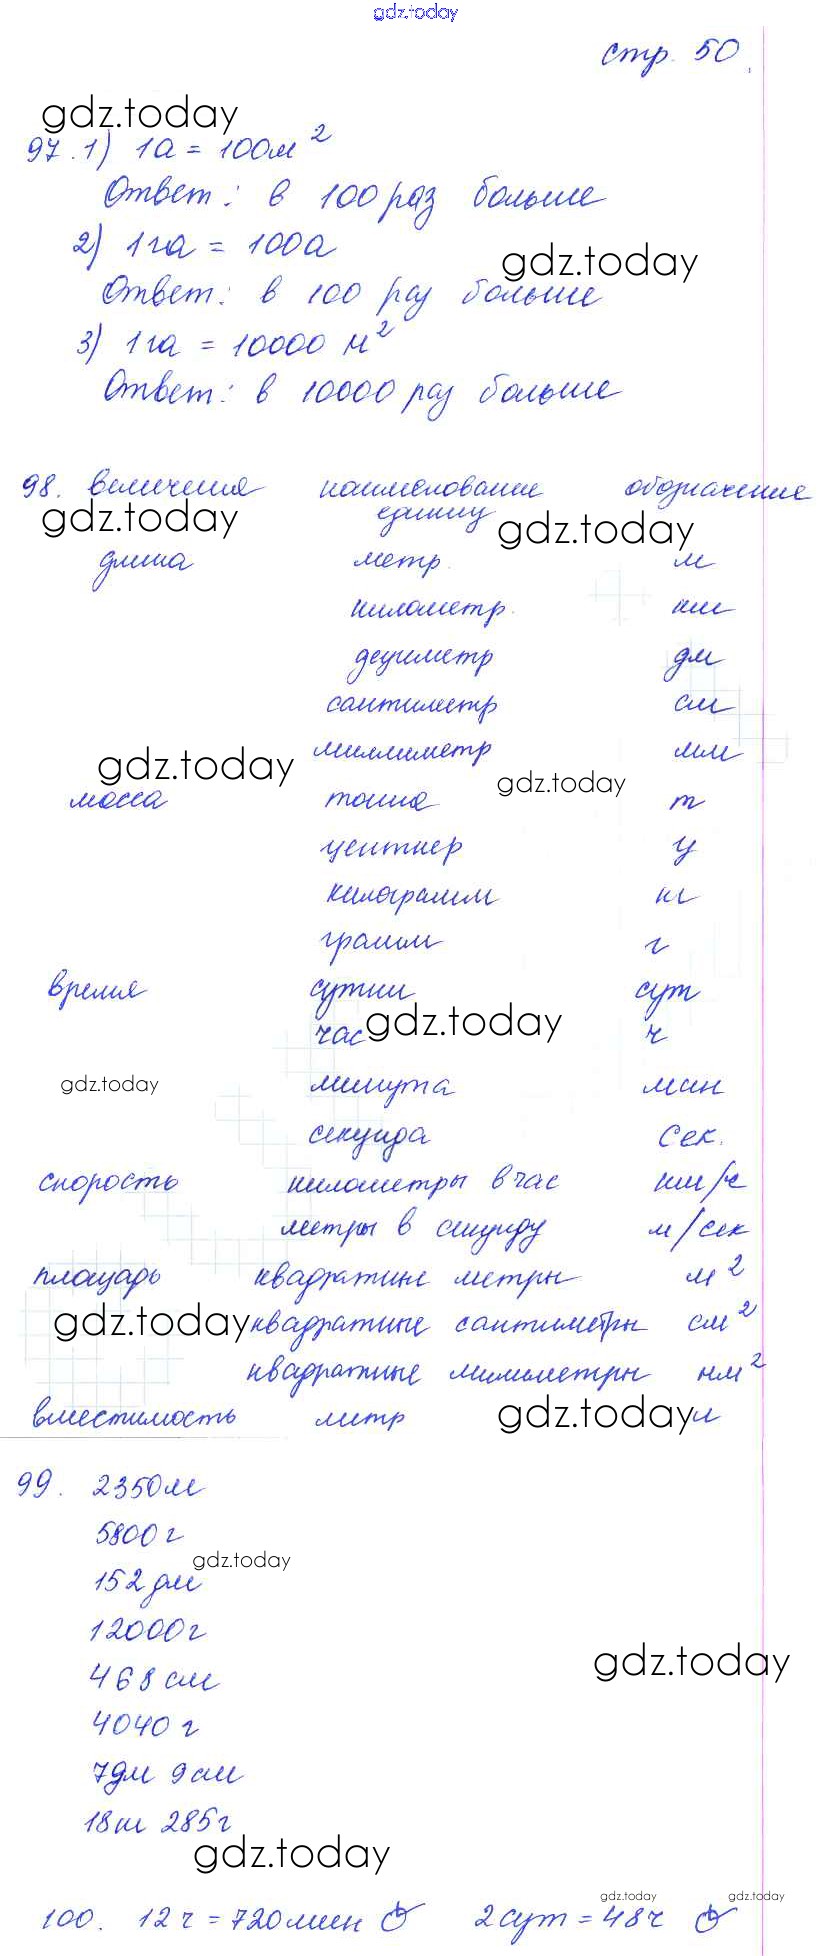 gdz.today
стр. 50
gdz.today
97. 1) 1а = 100м²
Ответ: в 100 раз больше
2) 1га = 100а
gdz.today
Ответ: в 100 раз больше
3) 1га = 10000 м²
Ответ: в 10000 раз больше
98. величения наименование единиц обозначение
gdz.today gdz.today
длина метр. м
километр. км
дециметр дм
сантиметр см
миллиметр мм
gdz.today gdz.today
масса тонна т
центнер ц
килограмм кг
грамм г
время сутки сут
час gdz.today ч
gdz.today минута мин
секунда сек.
скорость километры в час км/ч
метры в секунду м/сек
площадь квадратные метры м²
gdz.today квадратные сантиметры см²
квадратные миллиметры мм²
вместимость литр gdz.today л
99. 2350м
5800г
gdz.today
152дм
12000г
468см
gdz.today
4040г
7дм 9см
18кг 285г
gdz.today
gdz.today gdz.today
100. 12ч = 720мин 2сут = 48ч